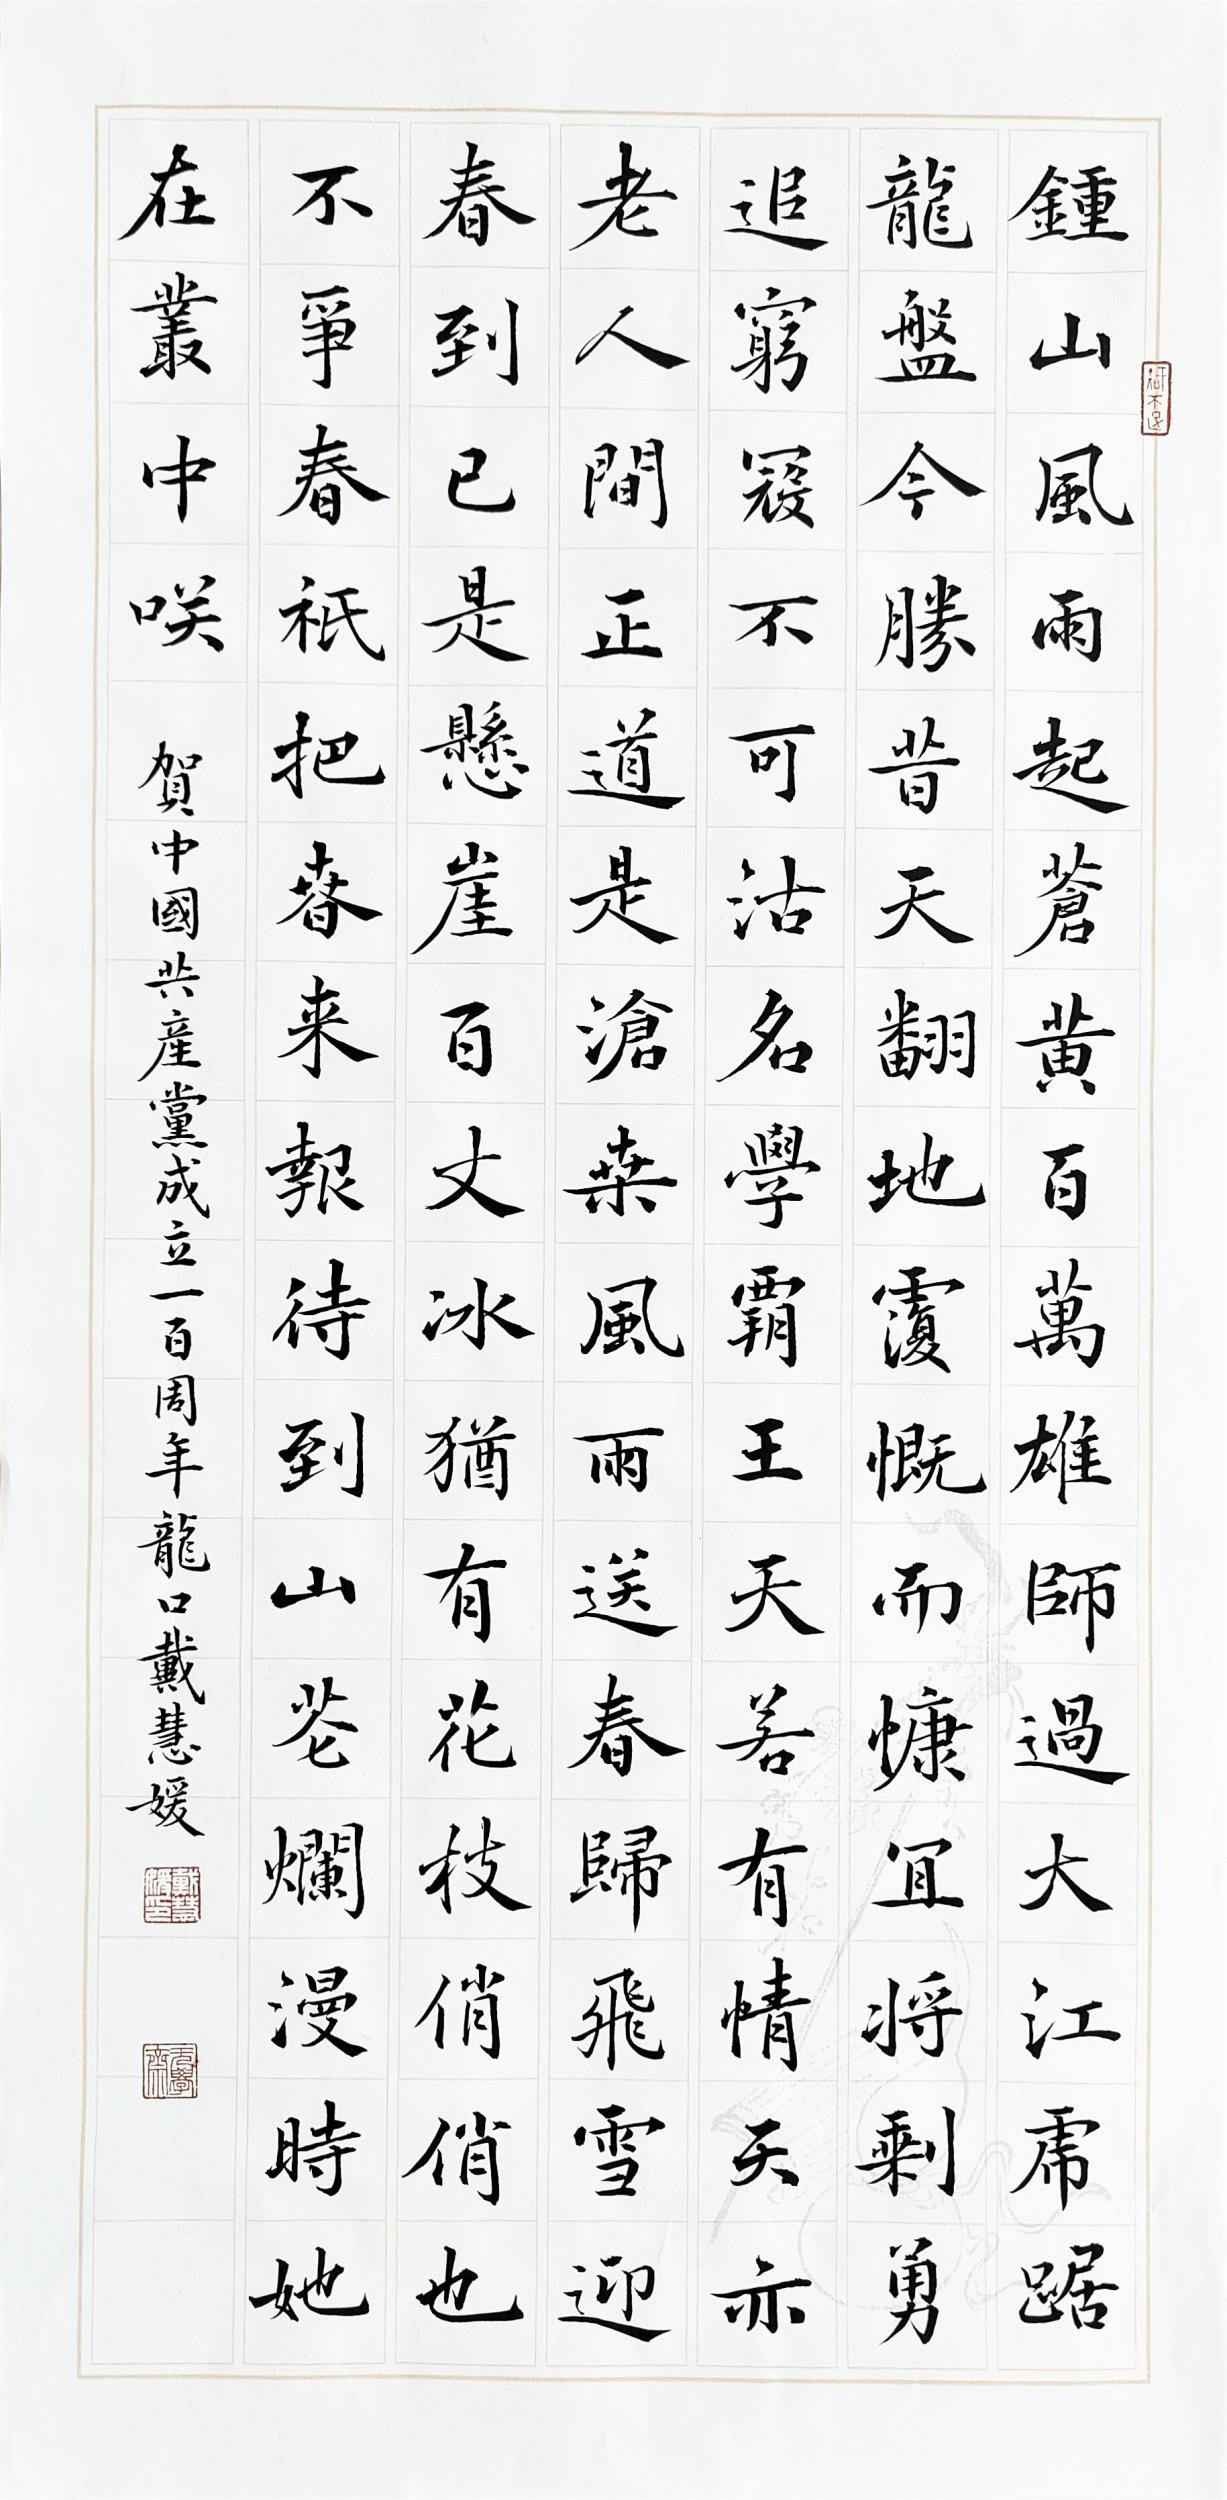 鍾山風雨起蒼黃百萬雄師過大江虎踞
龍盤今勝昔天翻地覆慨而慷宜將剩勇
追窮寇不可沽名學霸王天若有情天亦
老人間正道是滄桑風雨送春歸飛雪迎
春到已是懸崖百丈冰猶有花枝俏俏也
不爭春衹把春来報待到山花爛漫時她
在叢中咲
賀中國共產黨成立一百周年龍口戴慧媛
戴慧媛印